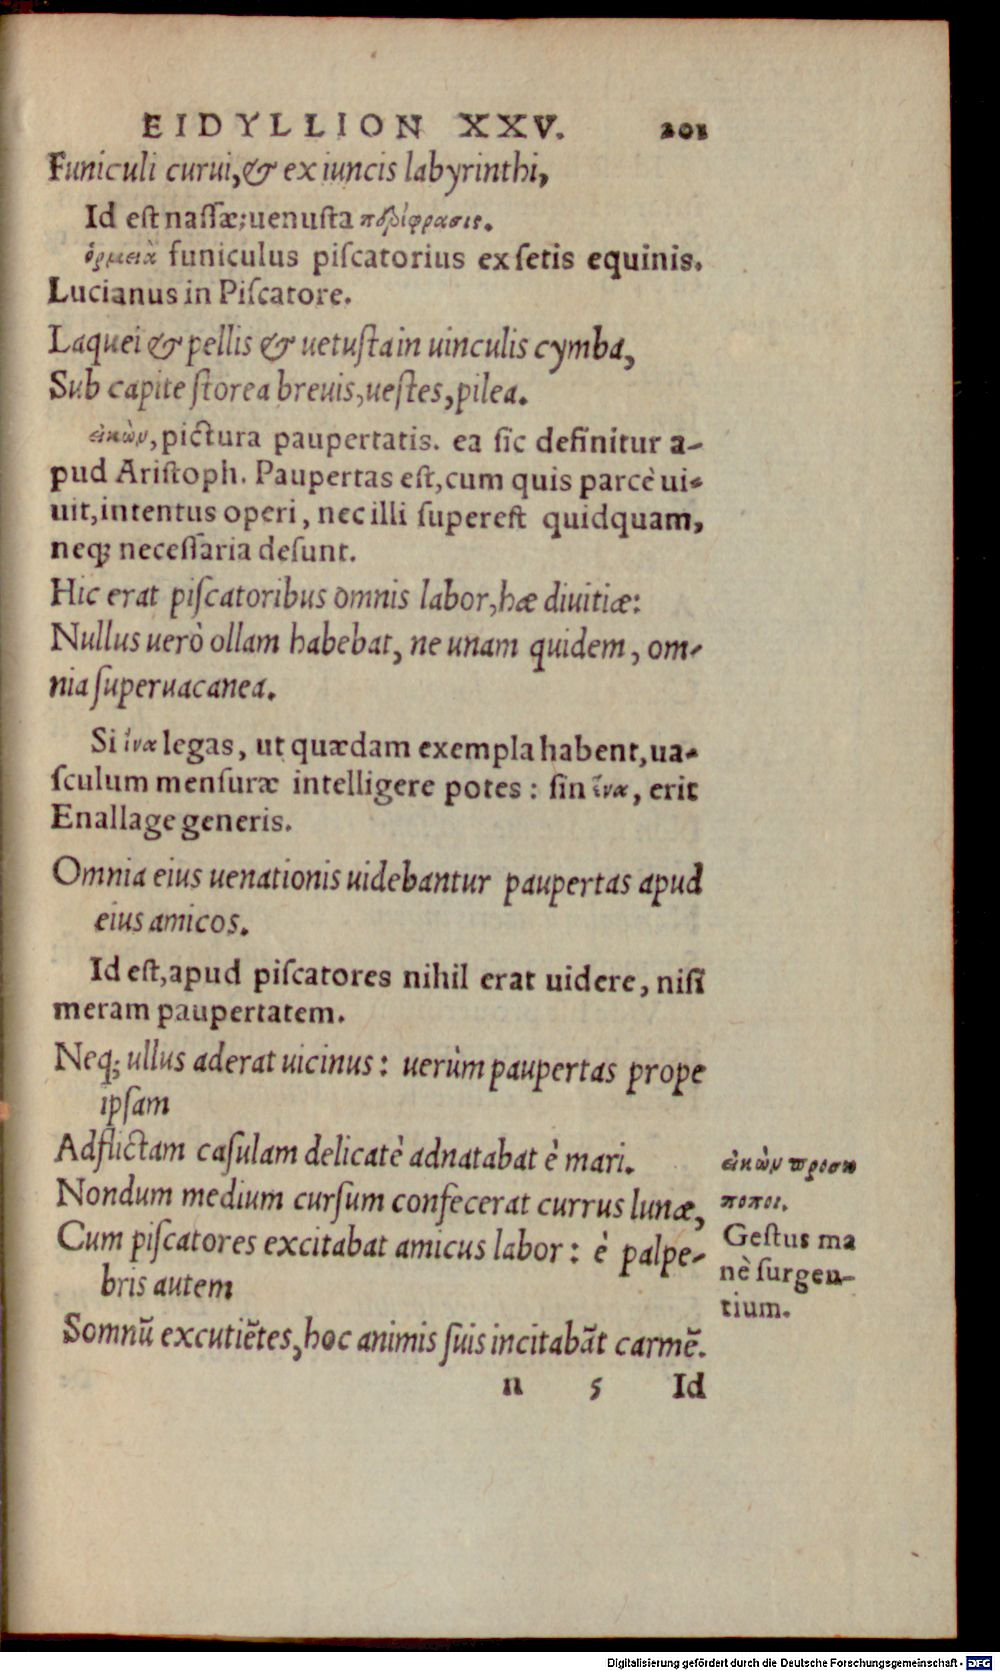 EIDYLLION XXV. 201
Funiculi curui, & ex iuncis labyrinthi,
Id est nassæ: uenusta περίφρασις.
ὁρμειὰ funiculus piscatorius ex setis equinis.
Lucianus in Piscatore.
Laquei & pellis & uetusta in uinculis cymba,
Sub capite storea breuis, uestes, pilea.
εἰκὼν, pictura paupertatis. ea sic definitur a-
pud Aristoph. Paupertas est, cum quis parcè ui-
uit, intentus operi, nec illi superest quidquam,
neq; necessaria desunt.
Hic erat piscatoribus omnis labor, hæ diuitiæ:
Nullus uerò ollam habebat, ne unam quidem, om-
nia superuacanea.
Si ἵνα legas, ut quædam exempla habent, ua-
sculum mensuræ intelligere potes: sin ἕνα, erit
Enallage generis.
Omnia eius uenationis uidebantur paupertas apud
eius amicos.
Id est, apud piscatores nihil erat uidere, nisi
meram paupertatem.
Neq; ullus aderat uicinus: uerùm paupertas prope
ipsam
Adflictam casulam delicatè adnatabat è mari.
Nondum medium cursum confecerat currus lunæ,
Cum piscatores excitabat amicus labor: è palpe-
bris autem
Somnũ excutiẽtes, hoc animis suis incitabãt carmẽ.
εἰκὼν προσω
ποποι.
Gestus ma
nè surgen-
tium.
n 5 Id
Digitalisierung gefördert durch die Deutsche Forschungsgemeinschaft - DFG